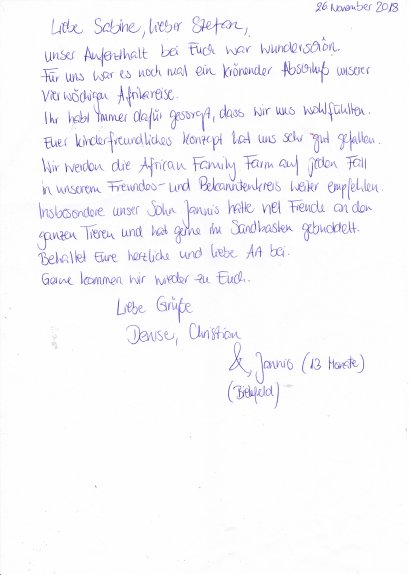 26 November 2018
Liebe Sabine, lieber Stefan,
unser Aufenthalt bei Euch war wunderschön.
Für uns war es noch mal ein krönender Abschluß unserer
vierwöchigen Afrikareise.
Ihr habt immer dafür gesorgt, dass wir uns wohlfühlten.
Euer kinderfreundliches Konzept hat uns sehr gut gefallen.
Wir werden die African Family Farm auf jeden Fall
in unserem Freundes- und Bekanntenkreis weiter empfehlen.
Insbesondere unser Sohn Jannis hatte viel Freude an den
ganzen Tieren und hat gerne im Sandkasten gebuddelt.
Behaltet Eure herzliche und liebe Art bei.
Gerne kommen wir wieder zu Euch.
Liebe Grüße
Denise, Christian
&, Jannis (13 Monate)
(Bielefeld)